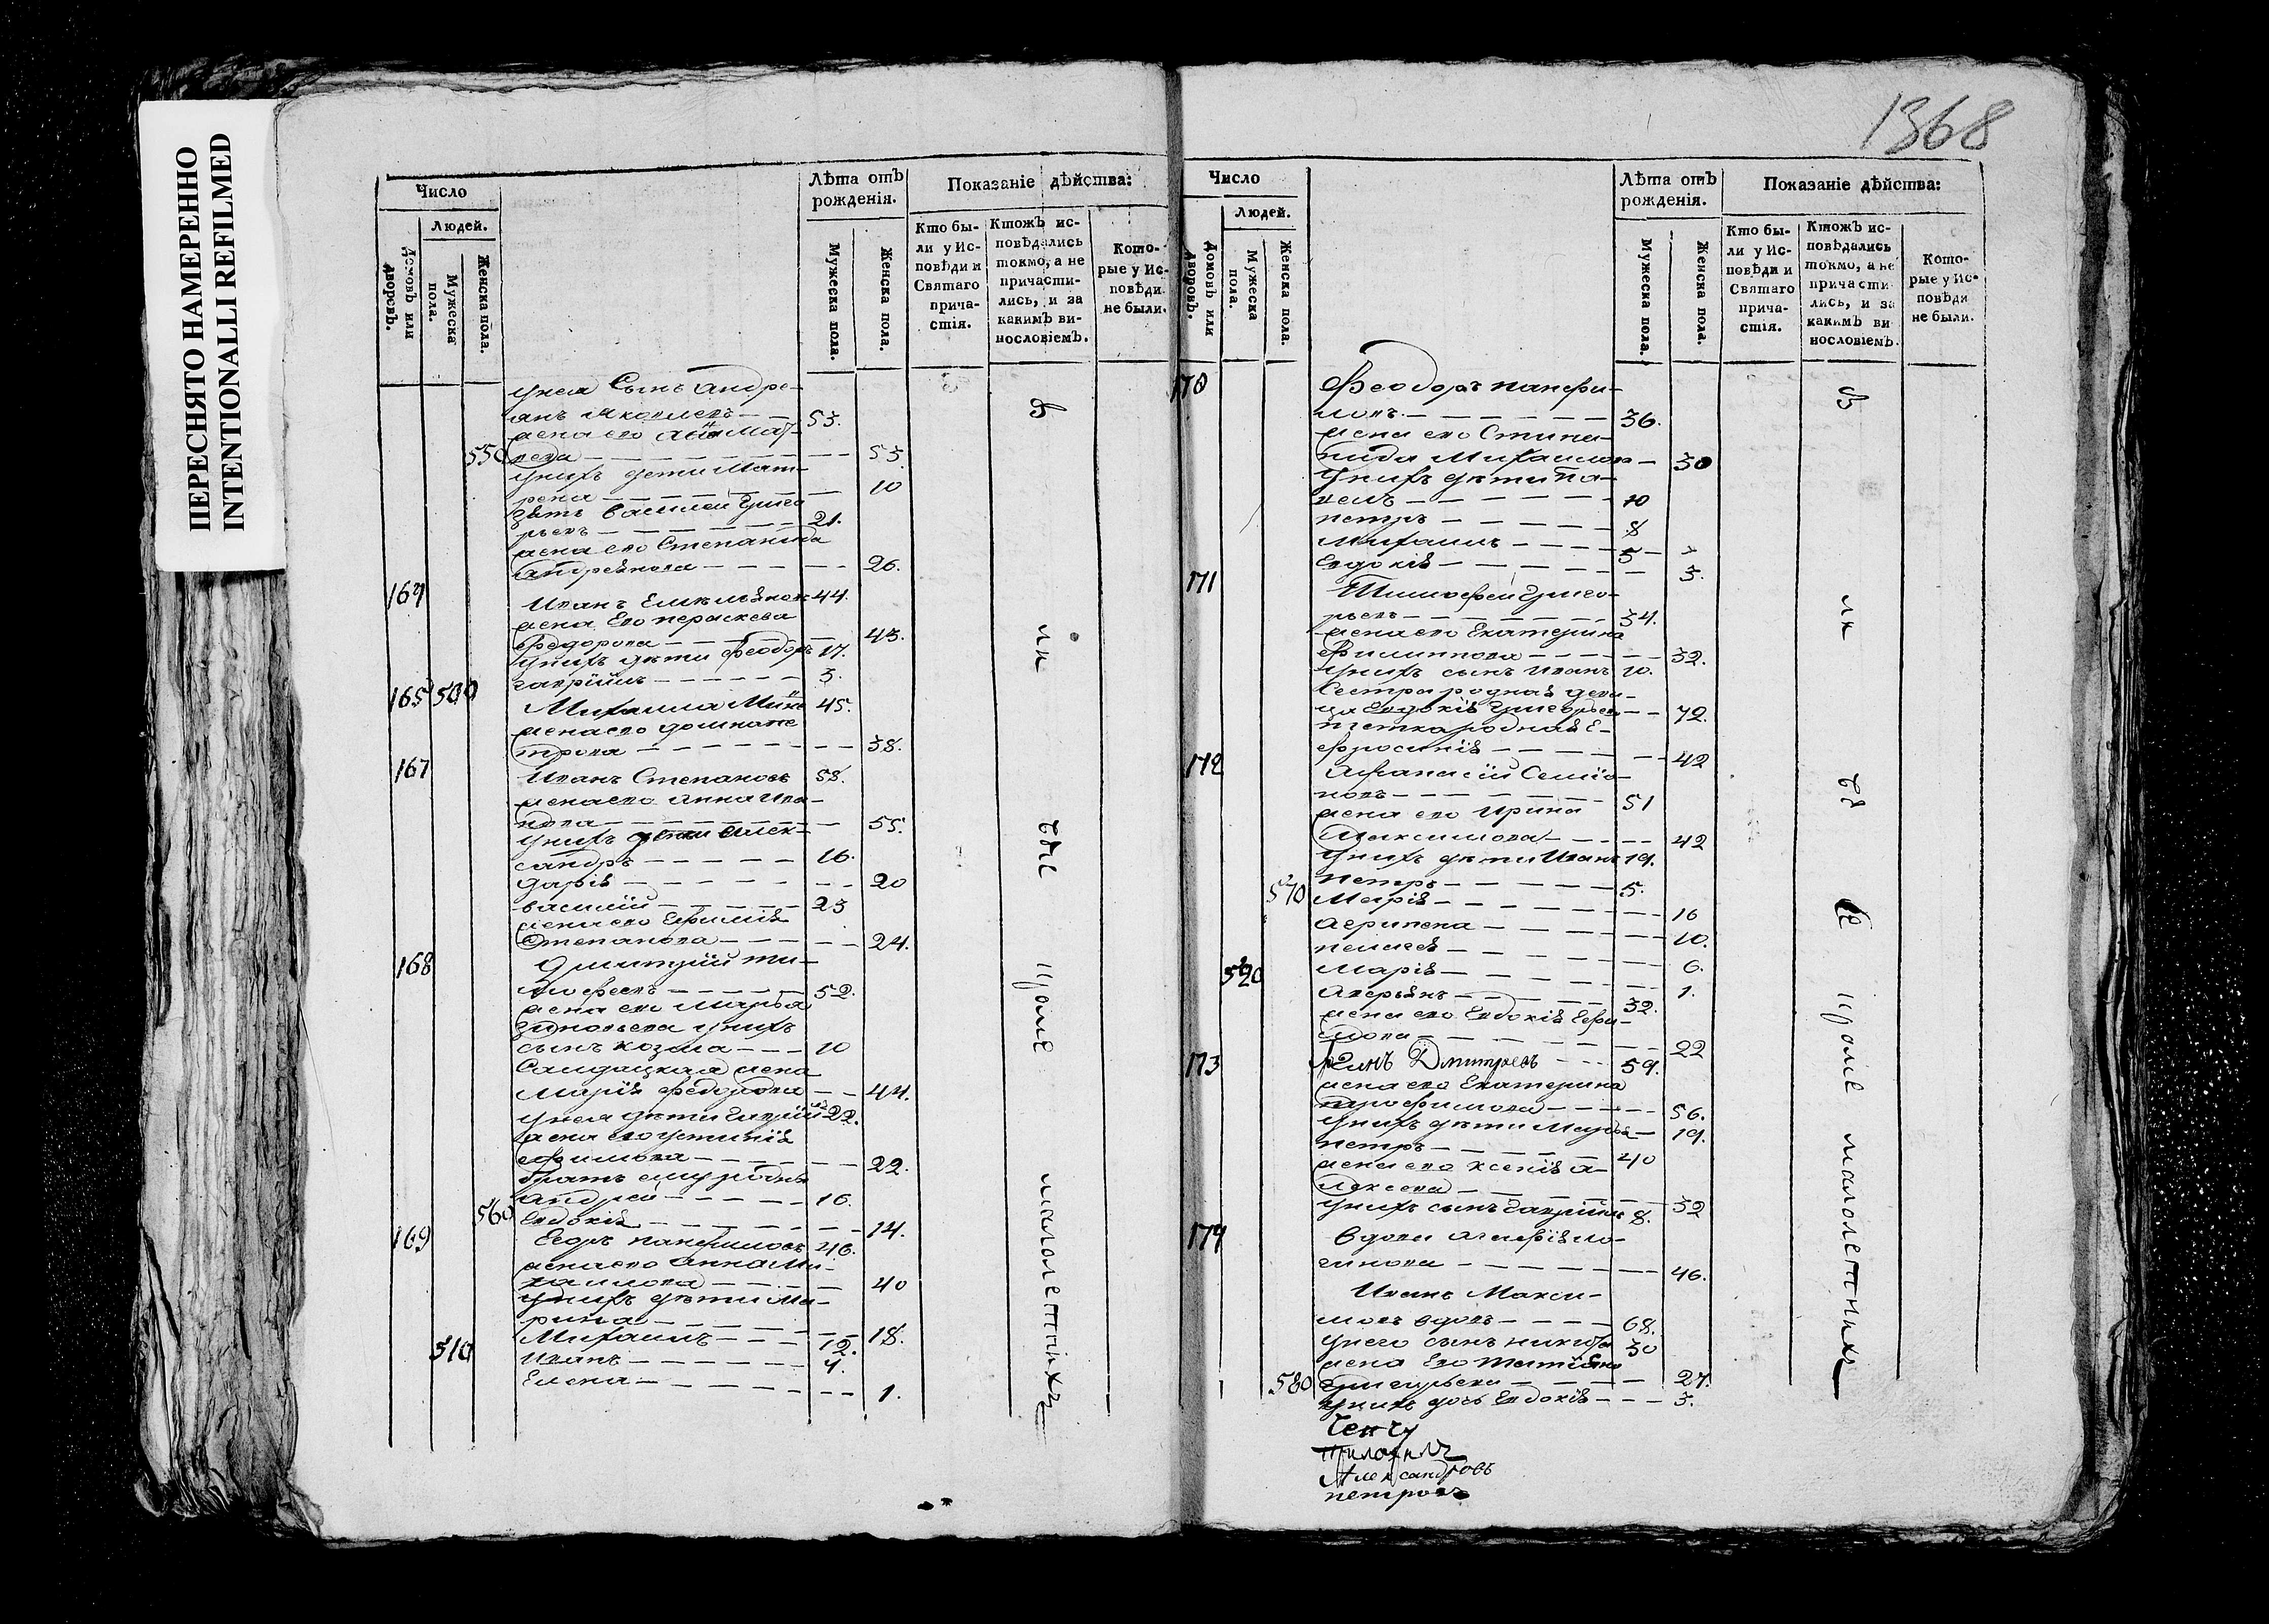 ПЕРЕСНЯТО НАМЕРЕННО
INTENTIONALLI REFILMED
1368
Число
Лѣта отъ рожденія.
Показаніе дѣйства:
Людей.
Домовъ или дворовъ.
Мужеска пола.
Женска пола.
Мужеска пола.
Женска пола.
Кто бы-
ли у Ис-
повѣди и
Святаго
прича-
стія.
Ктожъ ис-
повѣдались
токмо, а не
причасти-
лись, и за
какимъ ви-
нословіемъ.
Кото-
рые у Ис-
повѣди
не были.
унея Сынъ андре-
анъ яковлевъ 53.
жена его
550 53.
унихъ дети Мат-
рена 10
зять василей григо
рьевъ 21.
жена его Степанида
андреянова 26.
164 Иванъ Емельяновъ 44.
жена Его пераскева
федорова 43.
унихъ дети феодоръ 17.
500 гаврiилъ 3.
165 Михаила 45.
жена его домна пе
трова 38.
167 Иванъ Степановъ 58.
жена его анна ива-
нова 55.
унихъ дети алек-
сандръ 16.
дарiя 20
василiй 23
жена его Ефимiя
Степанова 24.
168 Дмитрiй ти-
мофеевъ 52.
жена его Марья
зиновьева унихъ
сынъ козма 10
Салдацкая жена
Марiя федорова 44.
унея дети 22.
жена его устинiя
ефимова 22.
братъ ему родны
андрей 16.
560 Евдокiя 14.
169 Егоръ панфиловъ 46.
жена его анна Ми-
хаилова 40
унихъ дети Ма-
рина 18.
Михаилъ 12.
510 Иванъ 4.
Елена 1.
в
ли
чыс
кроме
малолетнихъ
Число
Лѣта отъ рожденія.
Показаніе дѣйства:
Людей.
Домовъ или дворовъ.
Мужеска пола.
Женска пола.
Мужеска пола.
Женска пола.
Кто бы-
ли у Ис-
повѣди и
Святаго
прича-
стія.
Ктожъ ис-
повѣдались
токмо, а не
причасти-
лись, и за
какимъ ви-
нословіемъ.
Кото-
рые у Ис-
повѣди
не были.
170 Феодоръ панфи-
ловъ 36.
жена его Степа-
нида Михаилова 30
унихъ дети па-
велъ 10
петръ 8
Михаилъ 5
Евдокiя 3.
171 Тимофей григо-
рьевъ 34.
жена его Екатерина
филиппова 32.
унихъ сынъ иванъ 10.
Сестра родная деви-
ца Евдокiя григорьева 72.
тетка родная Е-
фросинiя 42
172 афанасiй Семiо-
новъ 51
жена его ирина
Максимова 42
унихъ дети Иванъ 19.
петръ 5.
570 Марiя 16
агрипена 10.
пелагея 6.
520 Марiя 1.
аверьянъ 32.
жена его Евдокiя Ефи-
мова 22
173 Дмитрiевъ 59.
жена его Екатерина
трофимова 56.
унихъ дети Марья 19.
петръ 40
жена его ксенiя а-
лексеева 32
унихъ сынъ гаврiилъ 8.
174 вдова
46.
Иванъ Макси-
мовъ вдовъ 68.
унего сынъ никита 30
жена Его татiяна
580 григорьева 27.
унихъ дочь Евдокiя 3.
в
ли
кроме
малолетнихъ
Александровъ
петровъ